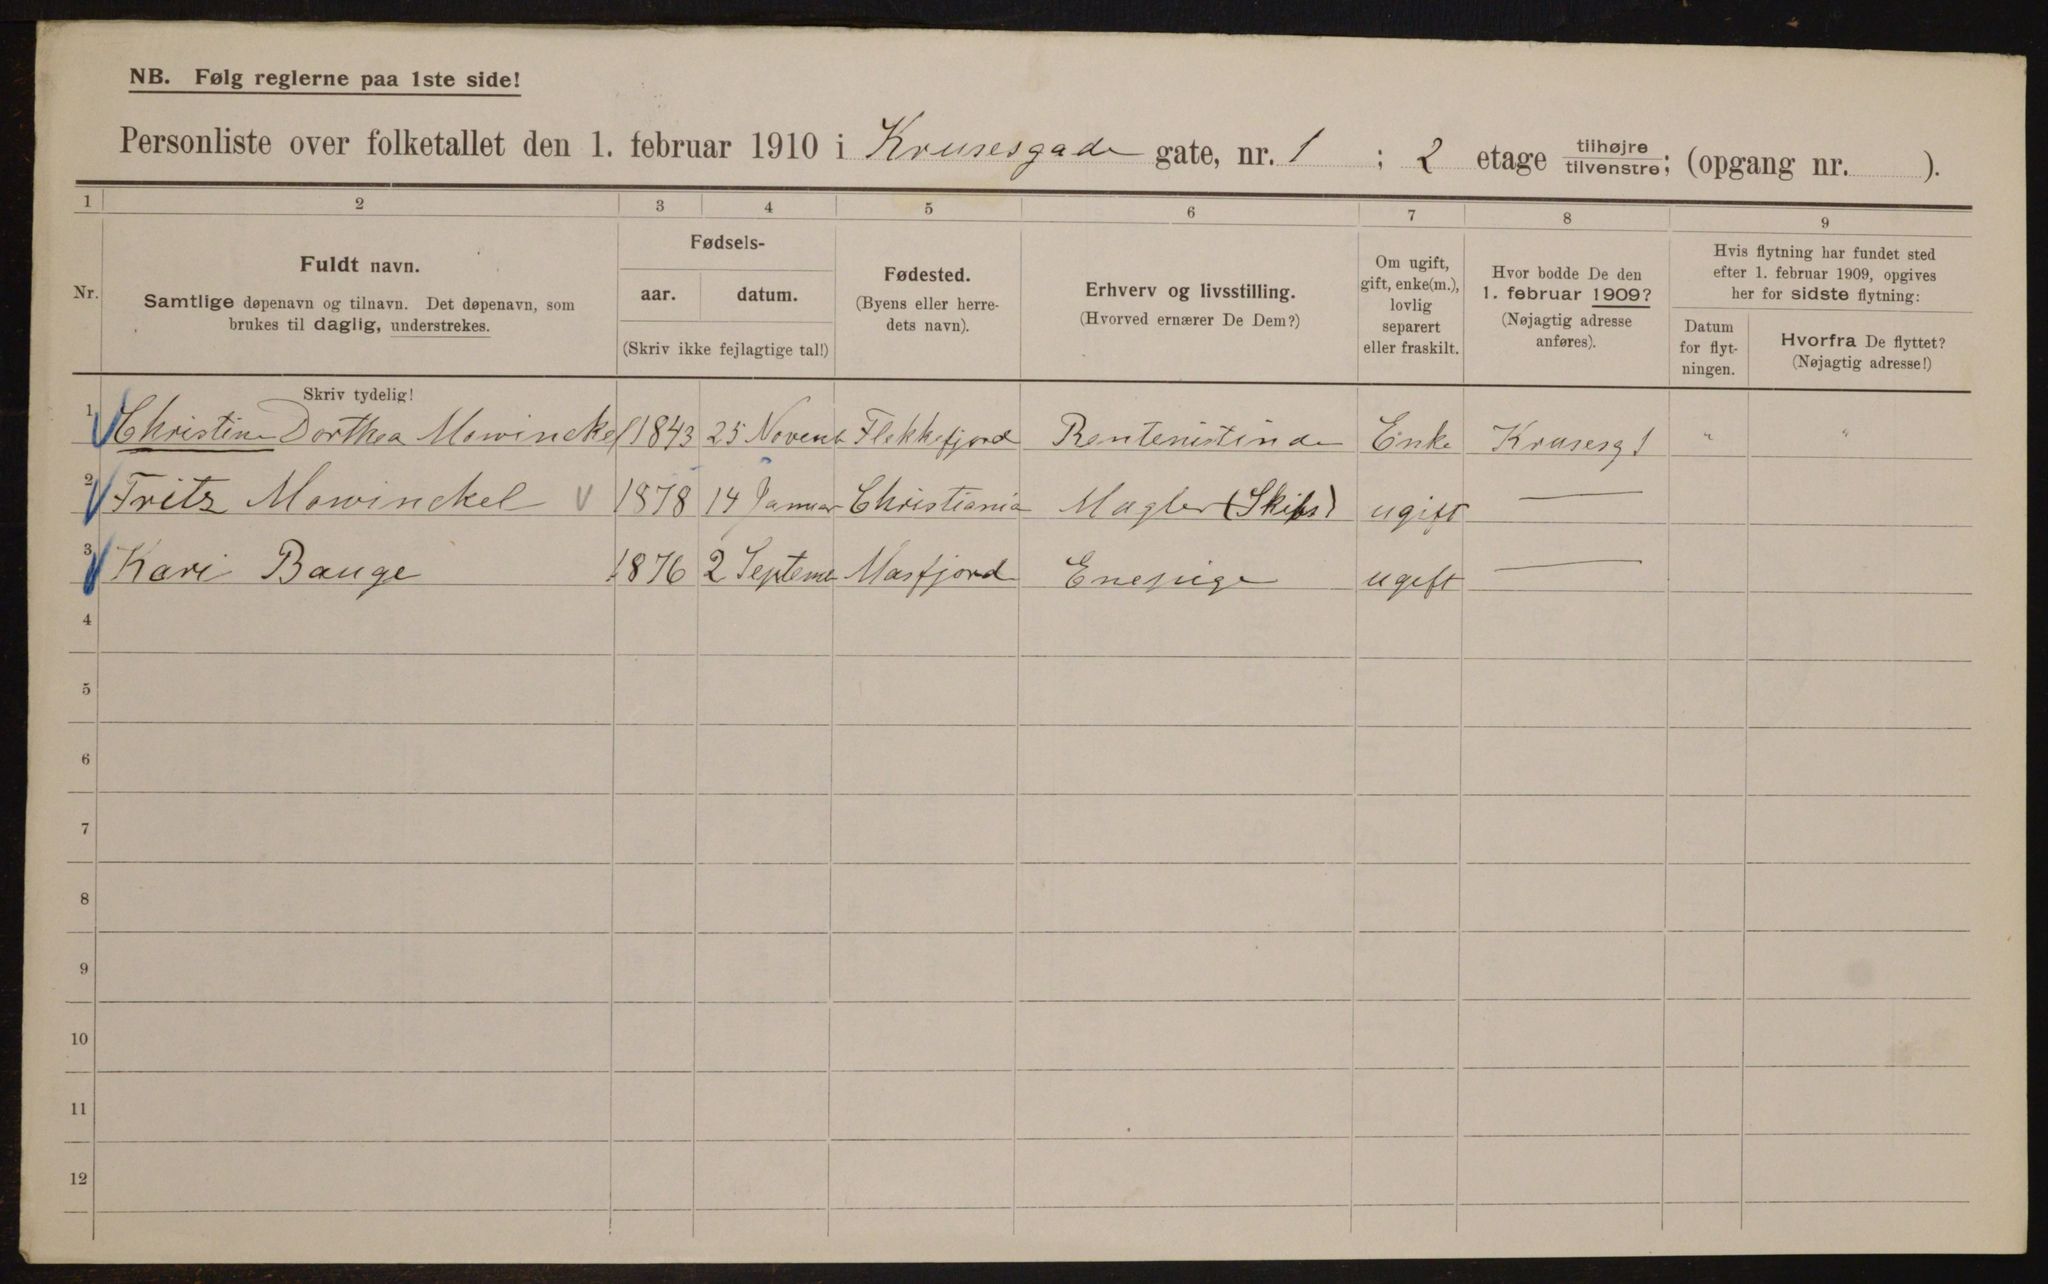 NB. Følg reglerne paa 1ste side!
Personliste over folketallet den 1. februar 1910 i Krusesgade gate, nr. 1 ; 2 etage tilhøjre tilvenstre; (opgang nr. ).
1 2 3 4 5 6 7 8 9
Nr.
Fuldt navn.
Samtlige døpenavn og tilnavn. Det døpenavn, som
brukes til daglig, understrekes.
Fødsels-
aar. datum.
(Skriv ikke fejlagtige tal!)
Fødested.
(Byens eller herre-
dets navn).
Erhverv og livsstilling.
(Hvorved ernærer De Dem?)
Om ugift,
gift, enke(m.),
lovlig
separert
eller fraskilt.
Hvor bodde De den
1. februar 1909?
(Nøjagtig adresse
anføres).
Hvis flytning har fundet sted
efter 1. februar 1909, opgives
her for sidste flytning:
Datum
for flyt-
ningen.
Hvorfra De flyttet?
(Nøjagtig adresse!)
Skriv tydelig!
1 Christine Dorthea Mowinckel 1843 25 Novemb Flekkefjord Rentenistinde Enke Krusesg 1 " "
2 Fritz Mowinckel 1878 14 Januar Christiania Mægler (Skibs) ugift —
3 Kari Bauge 1876 2 Septeme Masfjord Enepige ugift —
4
5
6
7
8
9
10
11
12